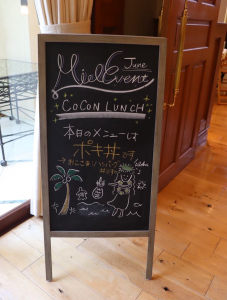 June
Miel Event
COCON LUNCH
本日のメニューは
ポキ丼です